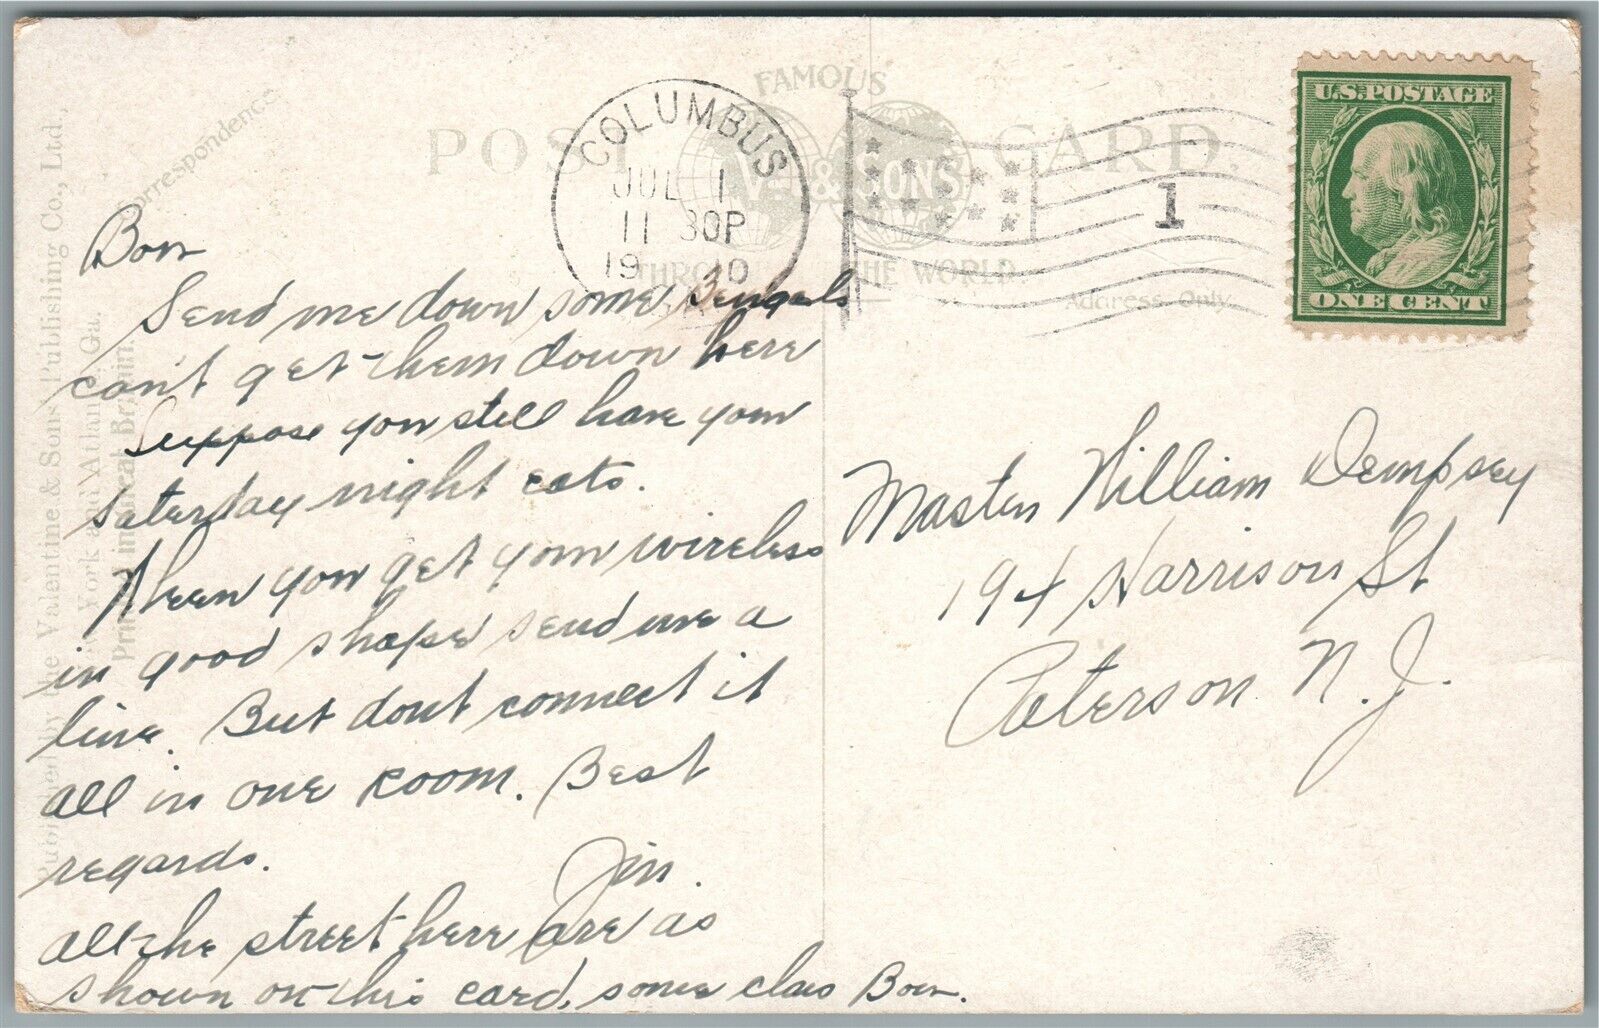 POST CARD.
FAMOUS
V & SONS
THROUGHOUT THE WORLD.
Correspondence
Address Only
Published by the Valentine & Sons Publishing Co., Ltd.,
New York and Atlanta, Ga.
Printed in Great Britain.
COLUMBUS
JUL 1
11 30P
1910
1
U.S. POSTAGE
ONE CENT
Send me down some Bengals
can't get them down here
Suppose you still have your
Saturday night eats.
When you get your wireless
in good shape send me a
line. But dont connect it
all in one room. Best
regards. Jim.
all the street here are as
shown on this card. some class
Master William Dempsey
194 Harrison St
Paterson N.J.